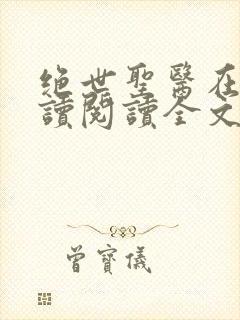 絕世聖醫在
讀閱讀全文
曾寶儀